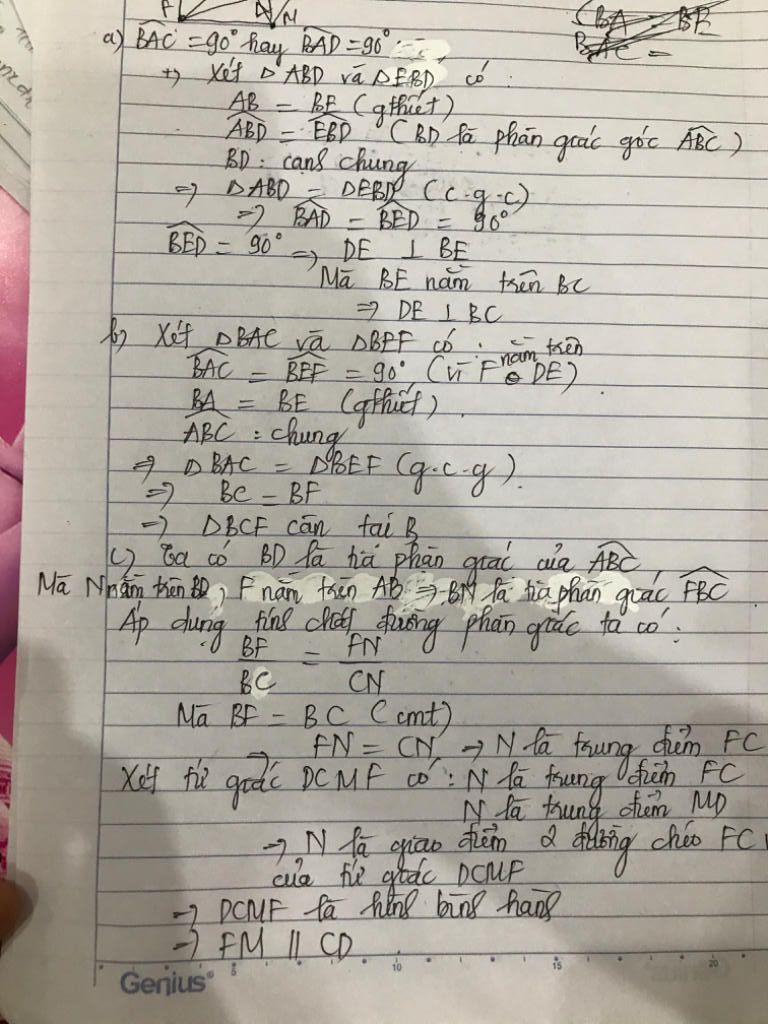 F N M
CBA = BE
BAC =
a) BAC = 90° hay BAD = 90°
+) Xét △ABD và △EBD có :
AB = BE (gthiết)
ABD = EBD ( BD là phân giác góc ABC )
BD : cạnh chung
=> △ABD = △EBD (c.g.c)
=> BAD = BED = 90°
BED = 90° => DE ⊥ BE
Mà BE nằm trên BC
=> DE ⊥ BC
b) Xét △BAC và △BEF có :
BAC = BEF = 90° (vì F nằm trên DE)
BA = BE (gthiết)
ABC : chung
=> △BAC = △BEF (g.c.g).
=> BC = BF
=> △BCF cân tại B
c) Ta có BD là tia phân giác của ABC
Mà N nằm trên BD, F nằm trên AB => BN là tia phân giác FBC
Áp dụng tính chất đường phân giác ta có :
BF = FN
BC CN
Mà BF = BC (cmt)
=> FN = CN => N là trung điểm FC
Xét tứ giác DCMF có : N là trung điểm FC
N là trung điểm MD
=> N là giao điểm 2 đường chéo FC
của tứ giác DCMF
=> DCMF là hình bình hành
=> FM || CD
Genius 5 10 15 20